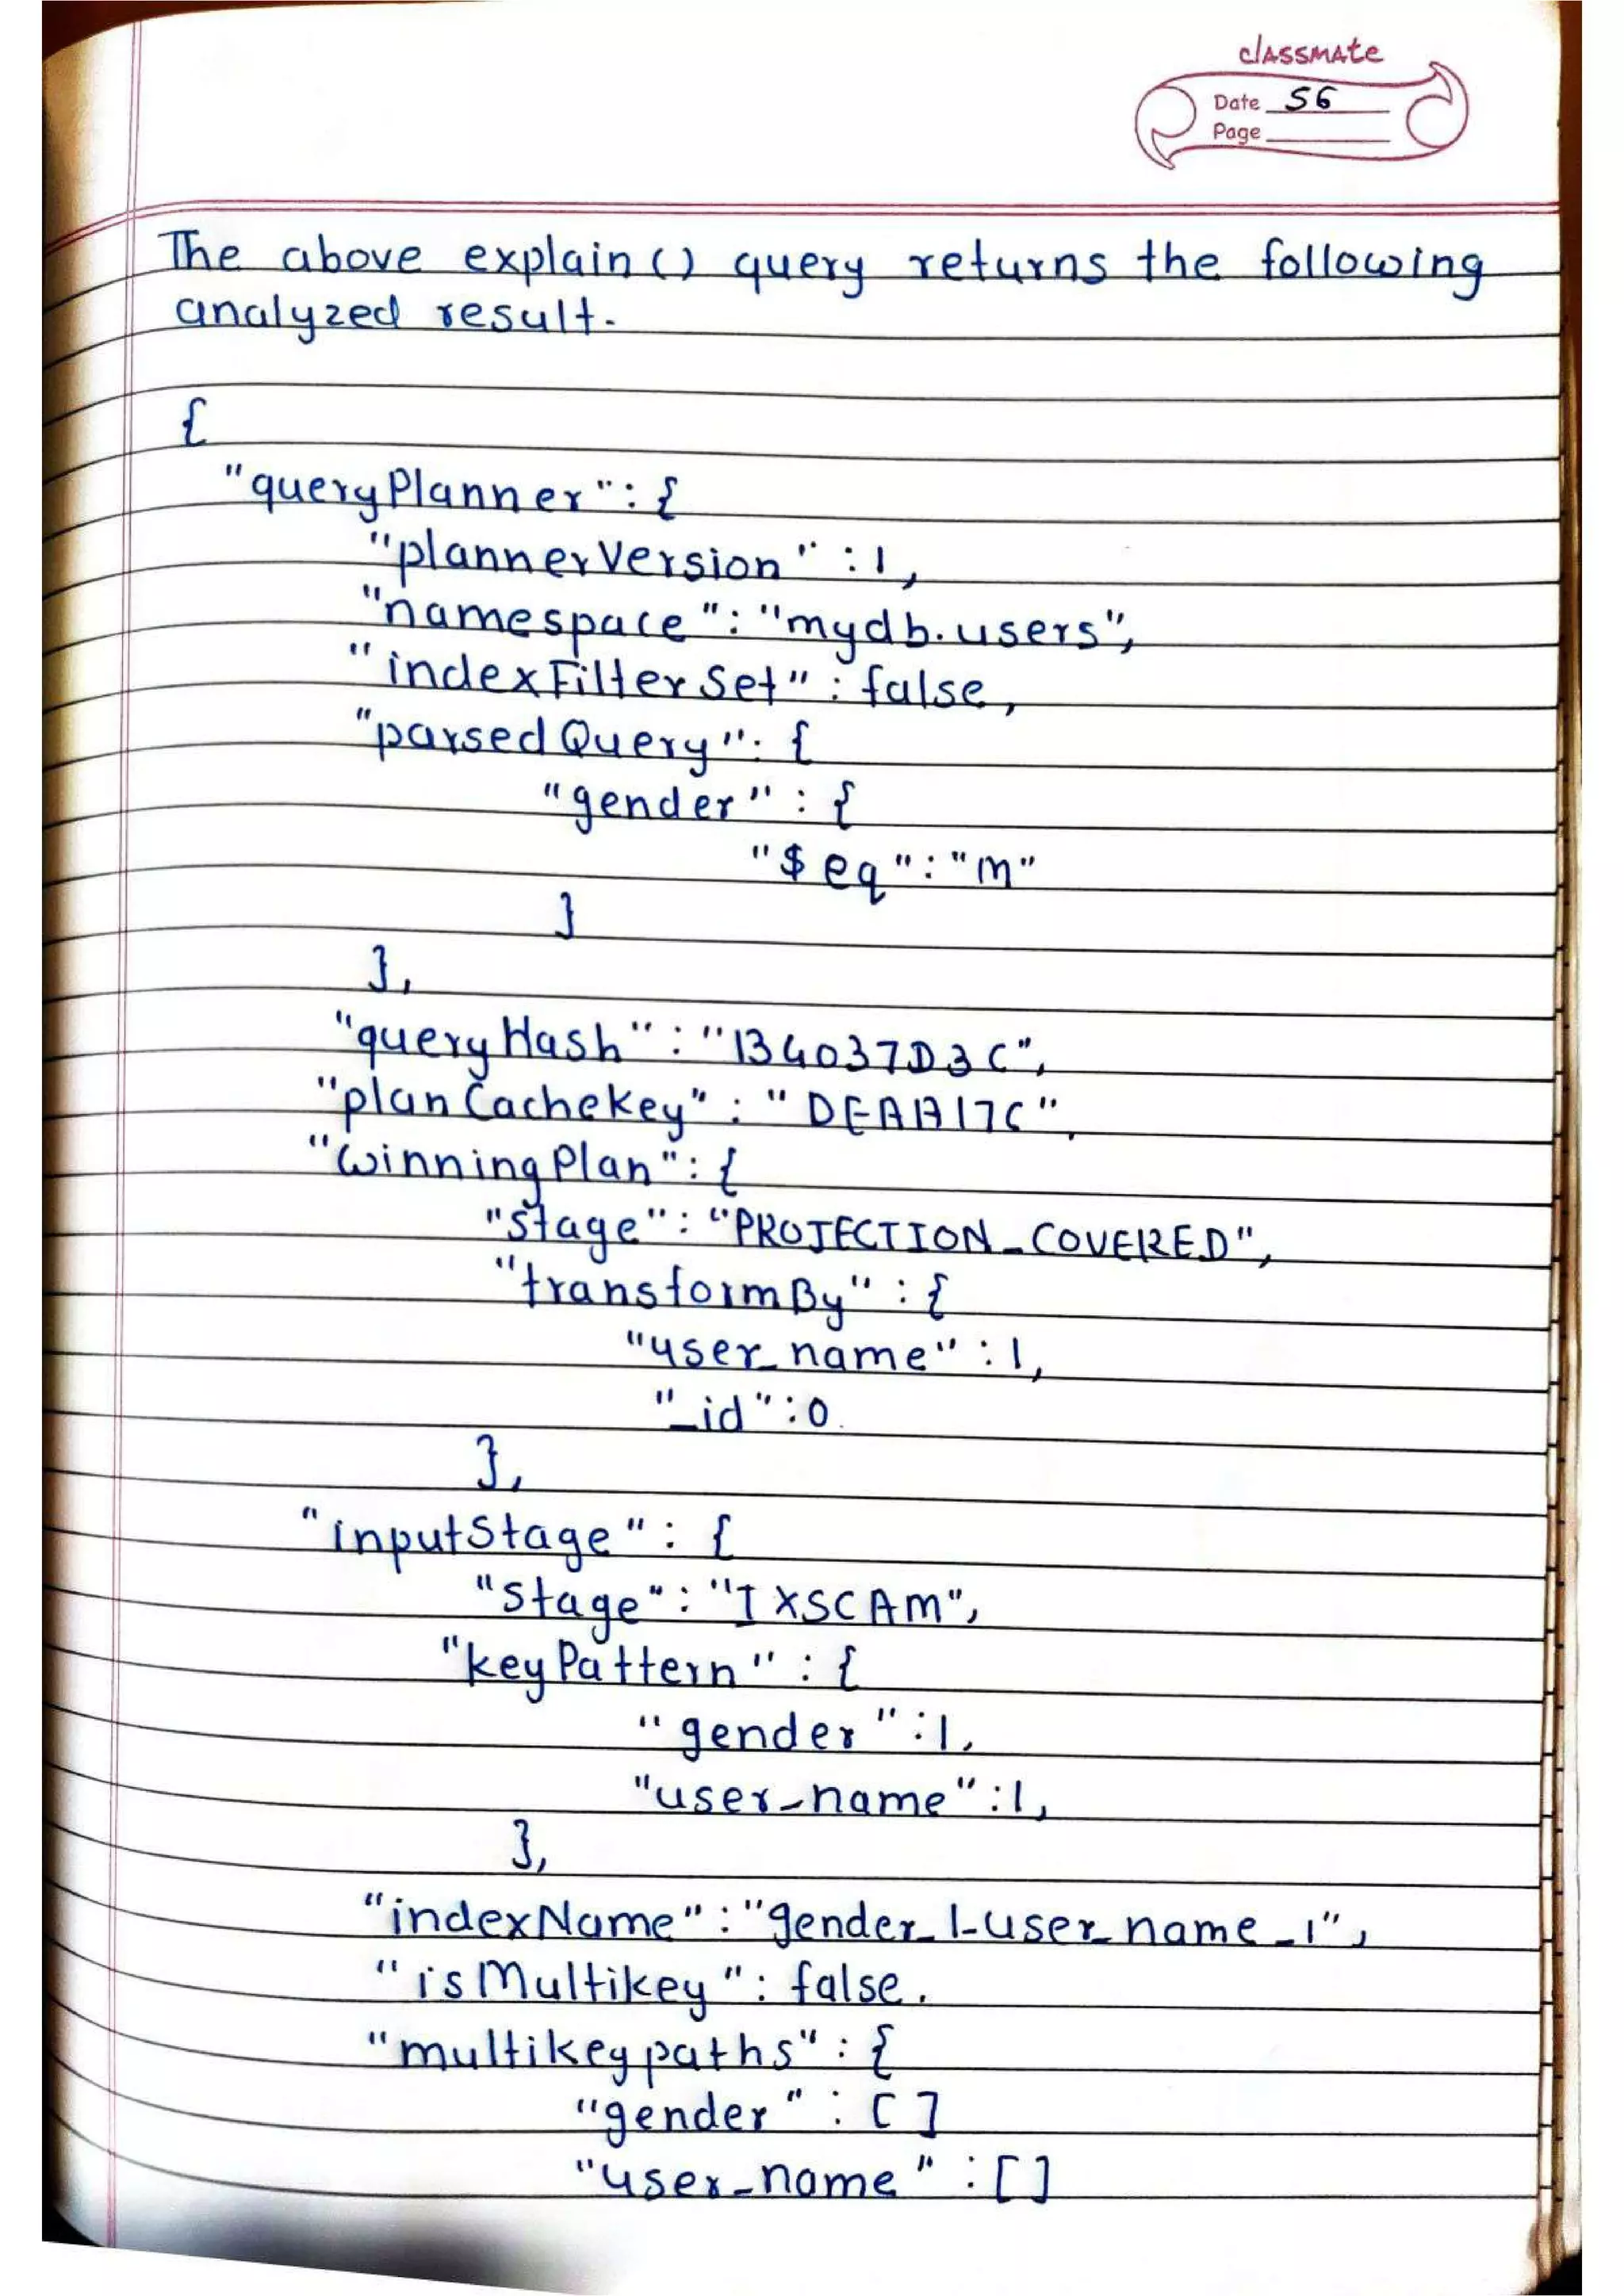 classmate
Date 56
Page
The above explain() query returns the following
analyzed result.
{
"queryPlanner": {
"plannerVersion" : 1,
"namespace": "mydb.users",
"indexFilterSet" : false,
"parsedQuery": {
"gender" : {
"$eq" : "m"
}
},
"queryHash" : "134037D3C",
"planCacheKey" : "DEAA17C",
"winningPlan": {
"stage": "PROJECTION_COVERED",
"transformBy" : {
"user_name" : 1,
"_id" : 0
},
"inputStage" : {
"stage" : "IXSCAM",
"keyPattern" : {
"gender" : 1,
"user_name" : 1,
},
"indexName" : "gender_1_user_name_1",
"isMultikey" : false,
"multikeypaths" : {
"gender" : []
"user_name" : []